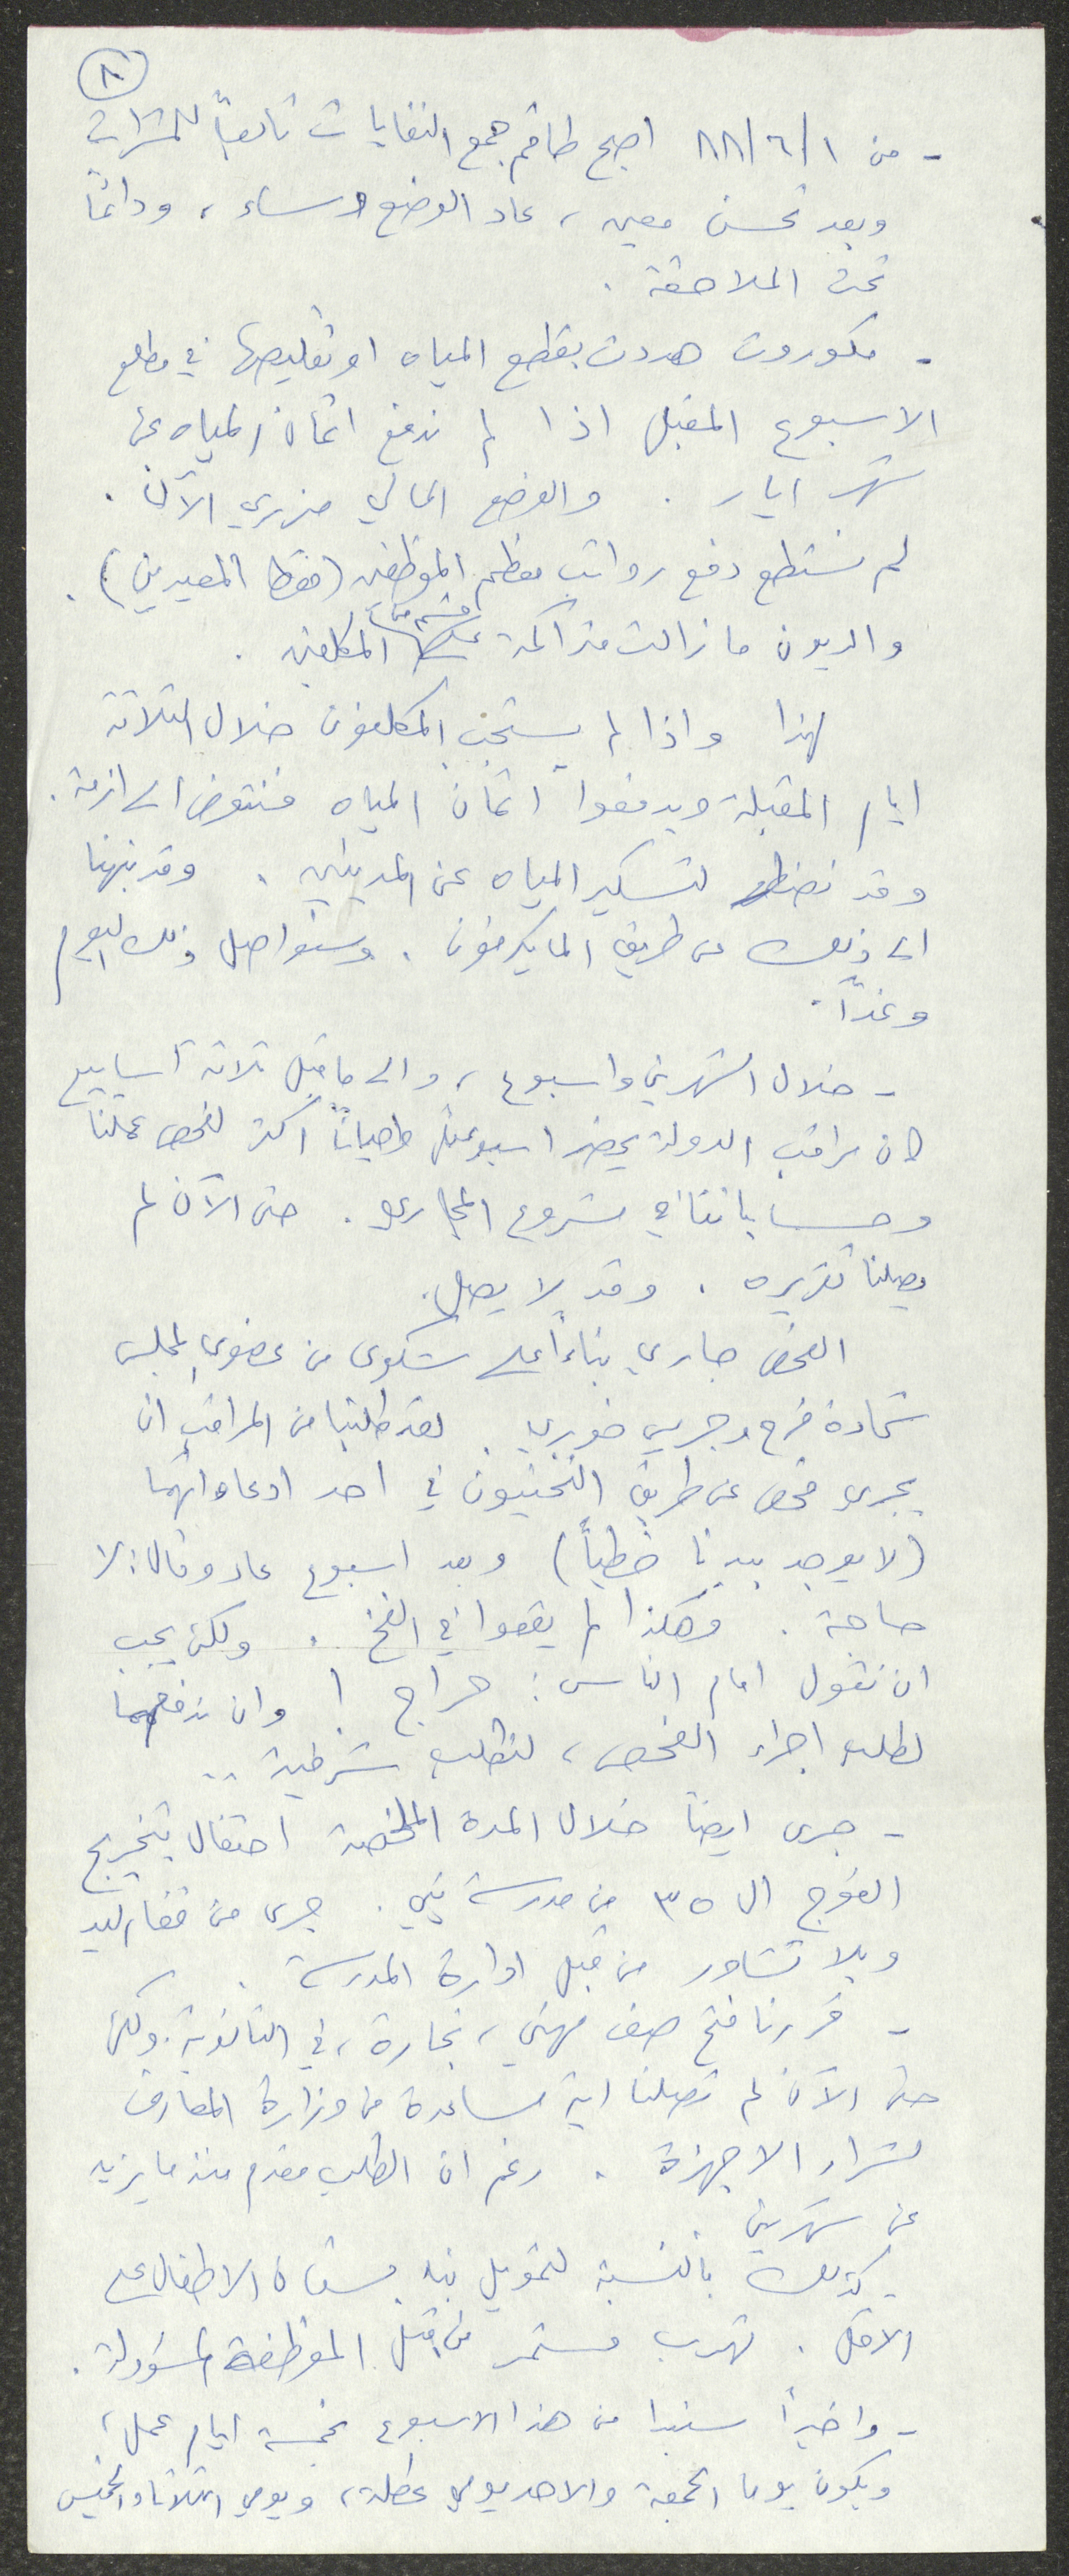 ٨
- من ٨٨/٦/١ اصبح طاقم جمع النفايات تابعاً للمشتريات
وبعد تحسن معين، عاد الوضع وساء، ودائماً
تحت الملاحقة.
- مكوروت هددت بقطع المياه او تقليصها في مطلع
الاسبوع المقبل اذا لم ندفع اثمان المياه عن
شهر ايار. والوضع المالي مزري الآن.
لم نستطع دفع رواتب معظم الموظفين (فقط المعيدين).
والديون ما زالت متراكمة على قسم من المكلفين.
لهذا واذا لم يستجب المكلفون خلال الثلاثة
ايام المقبلة ويدفعوا اثمان المياه فنتعرض الى ازمة.
وقد نضطر لتسكير المياه عن المدينين. وقد نبهنا
الى ذلك عن طريق المايكرفون. وسنواصل ذلك اليوم
وغداً.
- خلال الشهرين واسبوع، والى ما قبل ثلاثة أسابيع
كان مراقب الدولة يحضر اسبوعياً واحياناً أكثر لفحص عملنا
وحساباتنا في مشروع المجاري. حتى الآن لم
يصلنا تقريره. وقد لا يصل.
الفحص جاري بناءاً على شكوى من عضوي المجلس
شحادة فرح وجريس خوري. لقد طلبنا من المراقب ان
يجري فحص عن طريق الفنيون في احد ادعاءاتهما
(لا يوجد بيدنا خطياً) وبعد اسبوع عاد وقال: لا
حاجة. وهكذا لم يقعوا في الفخ. ولكن يجب
ان نقول امام الناس: حراج! وان ندفعهما
لطلب اجراء الفحص، لنطلب شرطية..
- جرى ايضاً خلال المدة الملخصة احتفال بتخريج
الفوج الـ ٣٥ من مدرسة يني. جرى من قفا اليد
وبلا تشاور من قبل ادارة المدرسة.
- قررنا فتح صف مهني، نجارة، في الثانوية. ولكن
حتى الآن لم تصلنا اية مساعدة من وزارة المعارف
لشراء الاجهزة. رغم ان الطلب مقدم منذ ما يزيد
عن شهرين
- كذلك بالنسبة لتمويل بناء بستان الاطفال على
الاقل. تهرب مستمر من قبل الموظفة المسؤولة.
- واخيراً سنبدا من هذا الاسبوع بخمسة ايام عمل،
ويكون يوما الجمعة والاحد يومي عطلة، ويومي الثلاثاء والخميس